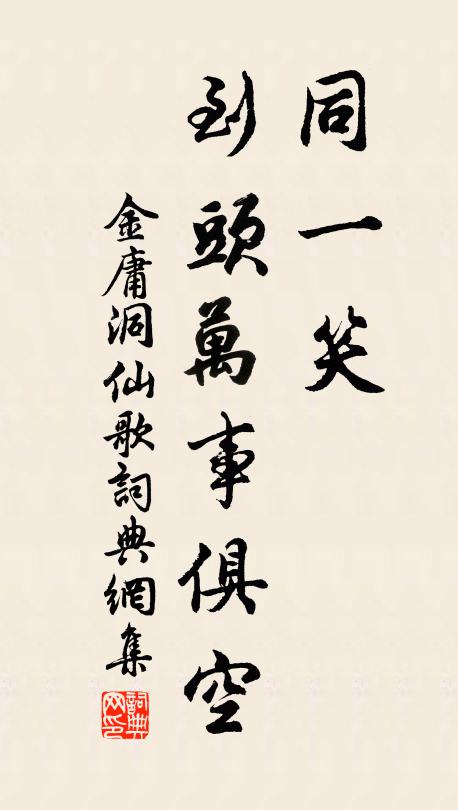 同一笑
到頭萬事俱空
金庸洞仙歌詞典網集
詞典网印